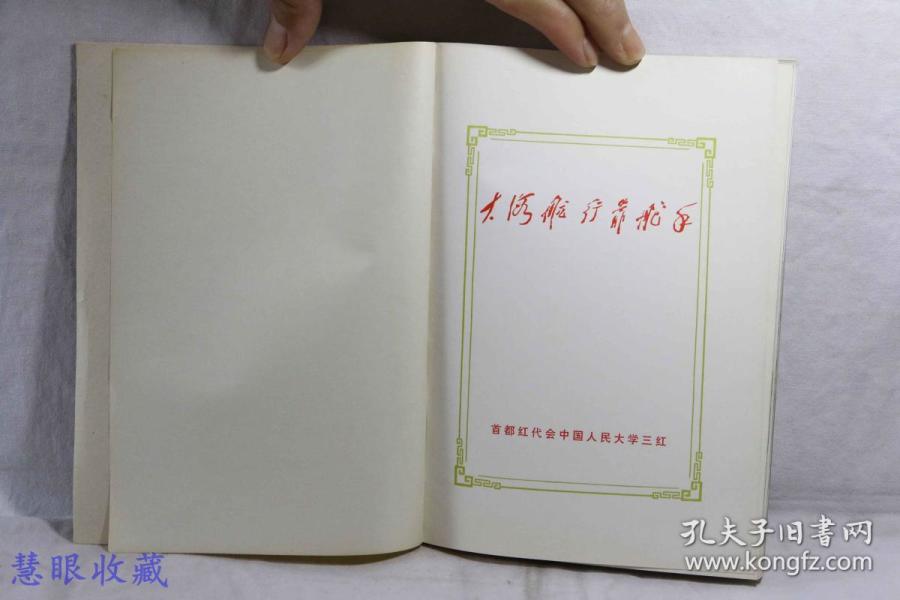 大海航行靠舵手
首都红代会中国人民大学三红
慧眼收藏
孔夫子旧书网
www.kongfz.com